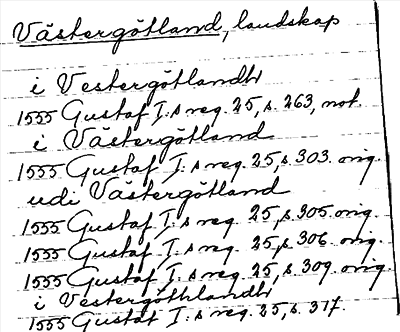 Västergötland, landskap
i Vestergötlandh
1555 Gustaf I:s reg. 25, s. 263, not.
i Västergötland
1555 Gustaf I:s reg. 25, s. 303. orig.
udi Västergötland
1555 Gustaf I:s reg. 25, s. 305. orig.
1555 Gustaf I:s reg. 25, s. 306 orig.
1555 Gustaf I:s reg. 25, s. 309. orig.
i Vestergöthlandh
1555 Gustaf I:s reg. 25, s. 317.